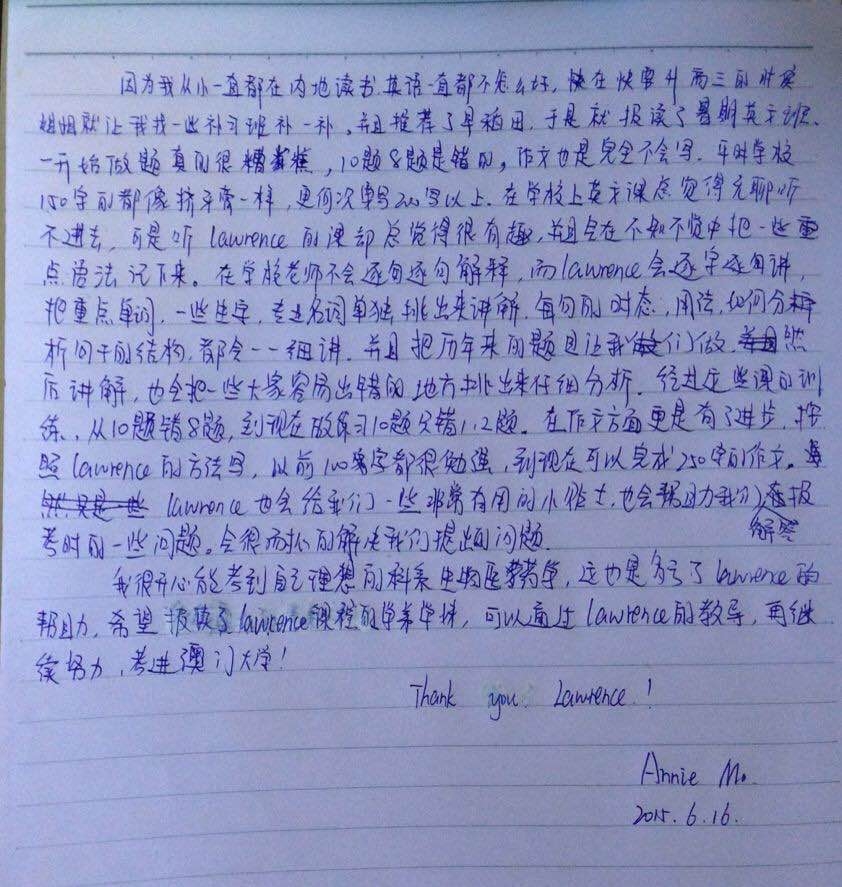 因为我从小一直都在内地读书,英语一直都不怎么好,快在快要升高三的时候
姐姐就让我找一些补习班补一补,并且推荐了早稻田,于是就报读了暑期英文班.
一开始做题真的很糟糕,10题8题是错的,作文也是完全不会写.平时学校
150字的都像挤牙膏一样,更何况要写200字以上.在学校上英文课总觉得无聊听
不进去,可是听lawrence的课却总觉得很有趣,并且会在不知不觉中把一些重
点语法记下来。在学校老师不会逐句逐句解释,而lawrence会逐字逐句讲,
把重点单词,一些生字,专业名词单独挑出来讲解.每句的时态,用法,如何分
析句子的结构,都会一一细讲.并且把历年来的题目让我们做,然
后讲解,也会把一些大家容易出错的地方挑出来仔细分析.经过这些课的训
练,从10题错8题,到现在做练习10题只错1,2题.在作文方面更是有了进步,按
照lawrence的方法写,以前100字都很勉强,到现在可以完成250字的作文。
lawrence也会给我们一些非常有用的小贴士,也会帮助我们解答报
考时的一些问题。会很耐心的解决我们提出的问题.
我很开心能考到自己理想的科系生物医药学,这也是多亏了lawrence的
帮助,希望报读了lawrence课程的学弟学妹,可以通过lawrence的教导,再继
续努力,考进澳门大学!
Thank you Lawrence!
Annie Mo.
2015.6.16.